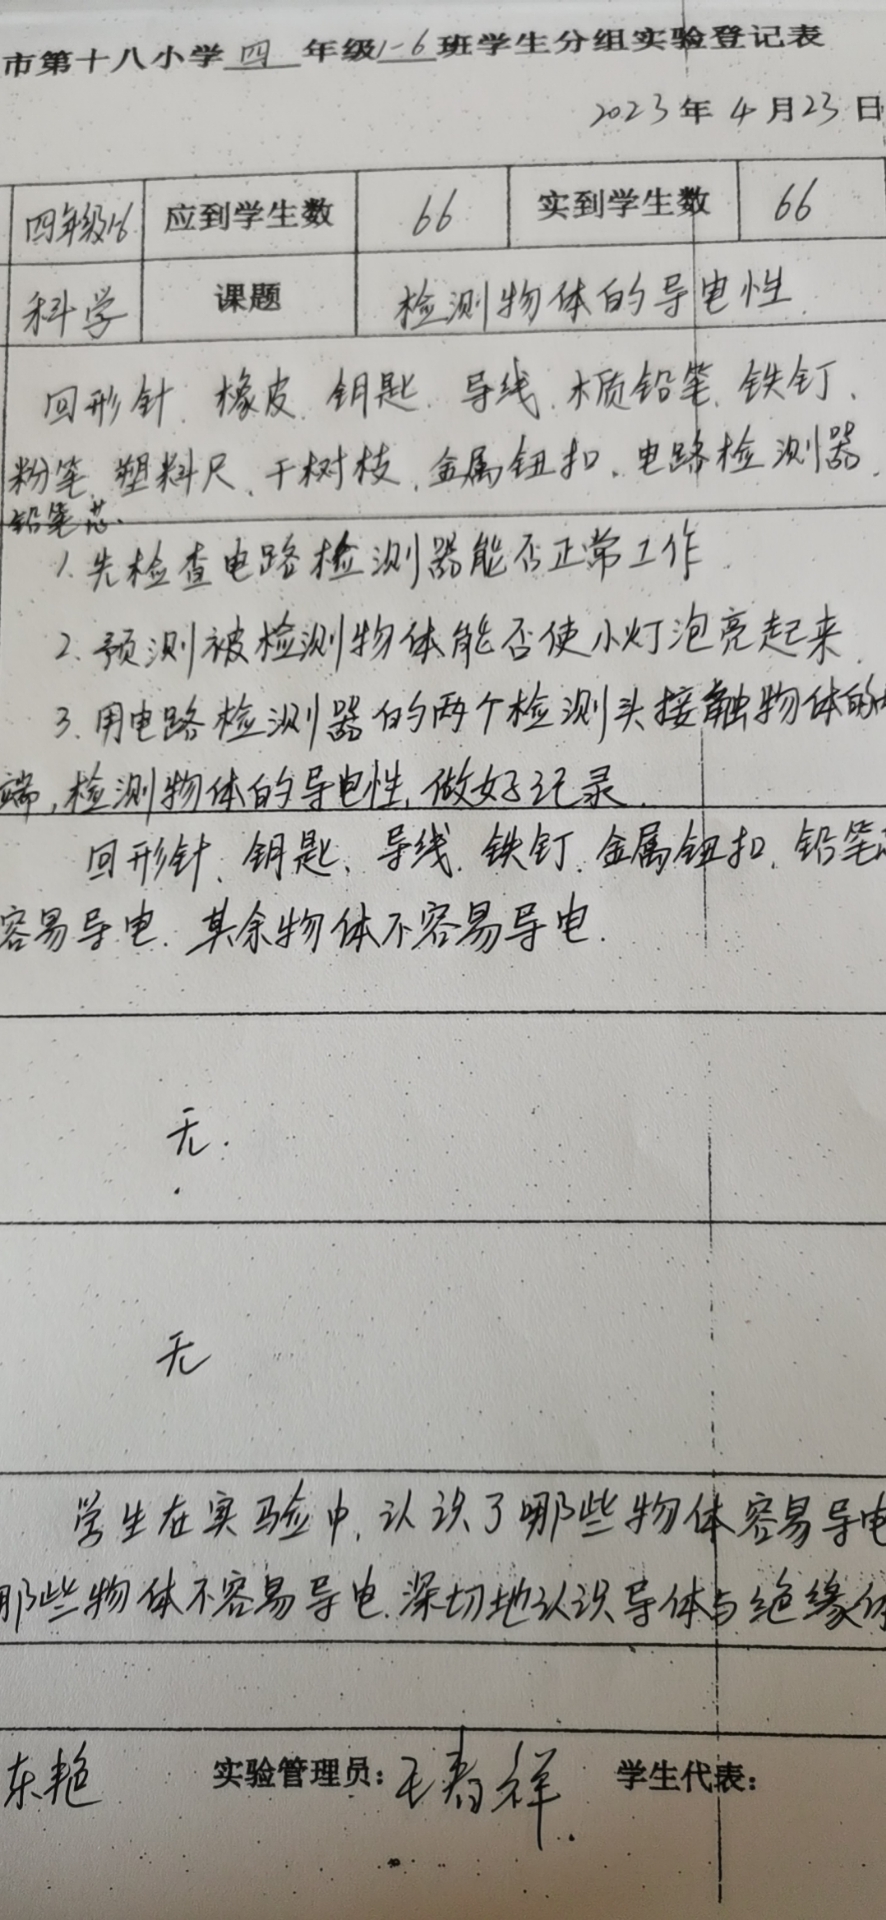 市第十八小学四年级1-6班学生分组实验登记表
2023年4月23日
四年级1-6 应到学生数 66 实到学生数 66
科学 课题 检测物体的导电性
回形针、橡皮、钥匙、导线、木质铅笔、铁钉、
粉笔、塑料尺、干树枝、金属钮扣、电路检测器、
铅笔芯.
1. 先检查电路检测器能否正常工作.
2. 预测被检测物体能否使小灯泡亮起来.
3. 用电路检测器的两个检测头接触物体的
端,检测物体的导电性,做好记录.
回形针、钥匙、导线、铁钉、金属钮扣、铅笔
容易导电.其余物体不容易导电.
无.
无
学生在实验中,认识了哪些物体容易导电
那些物体不容易导电.深切地认识导体与绝缘
东艳 实验管理员: 祥 学生代表: